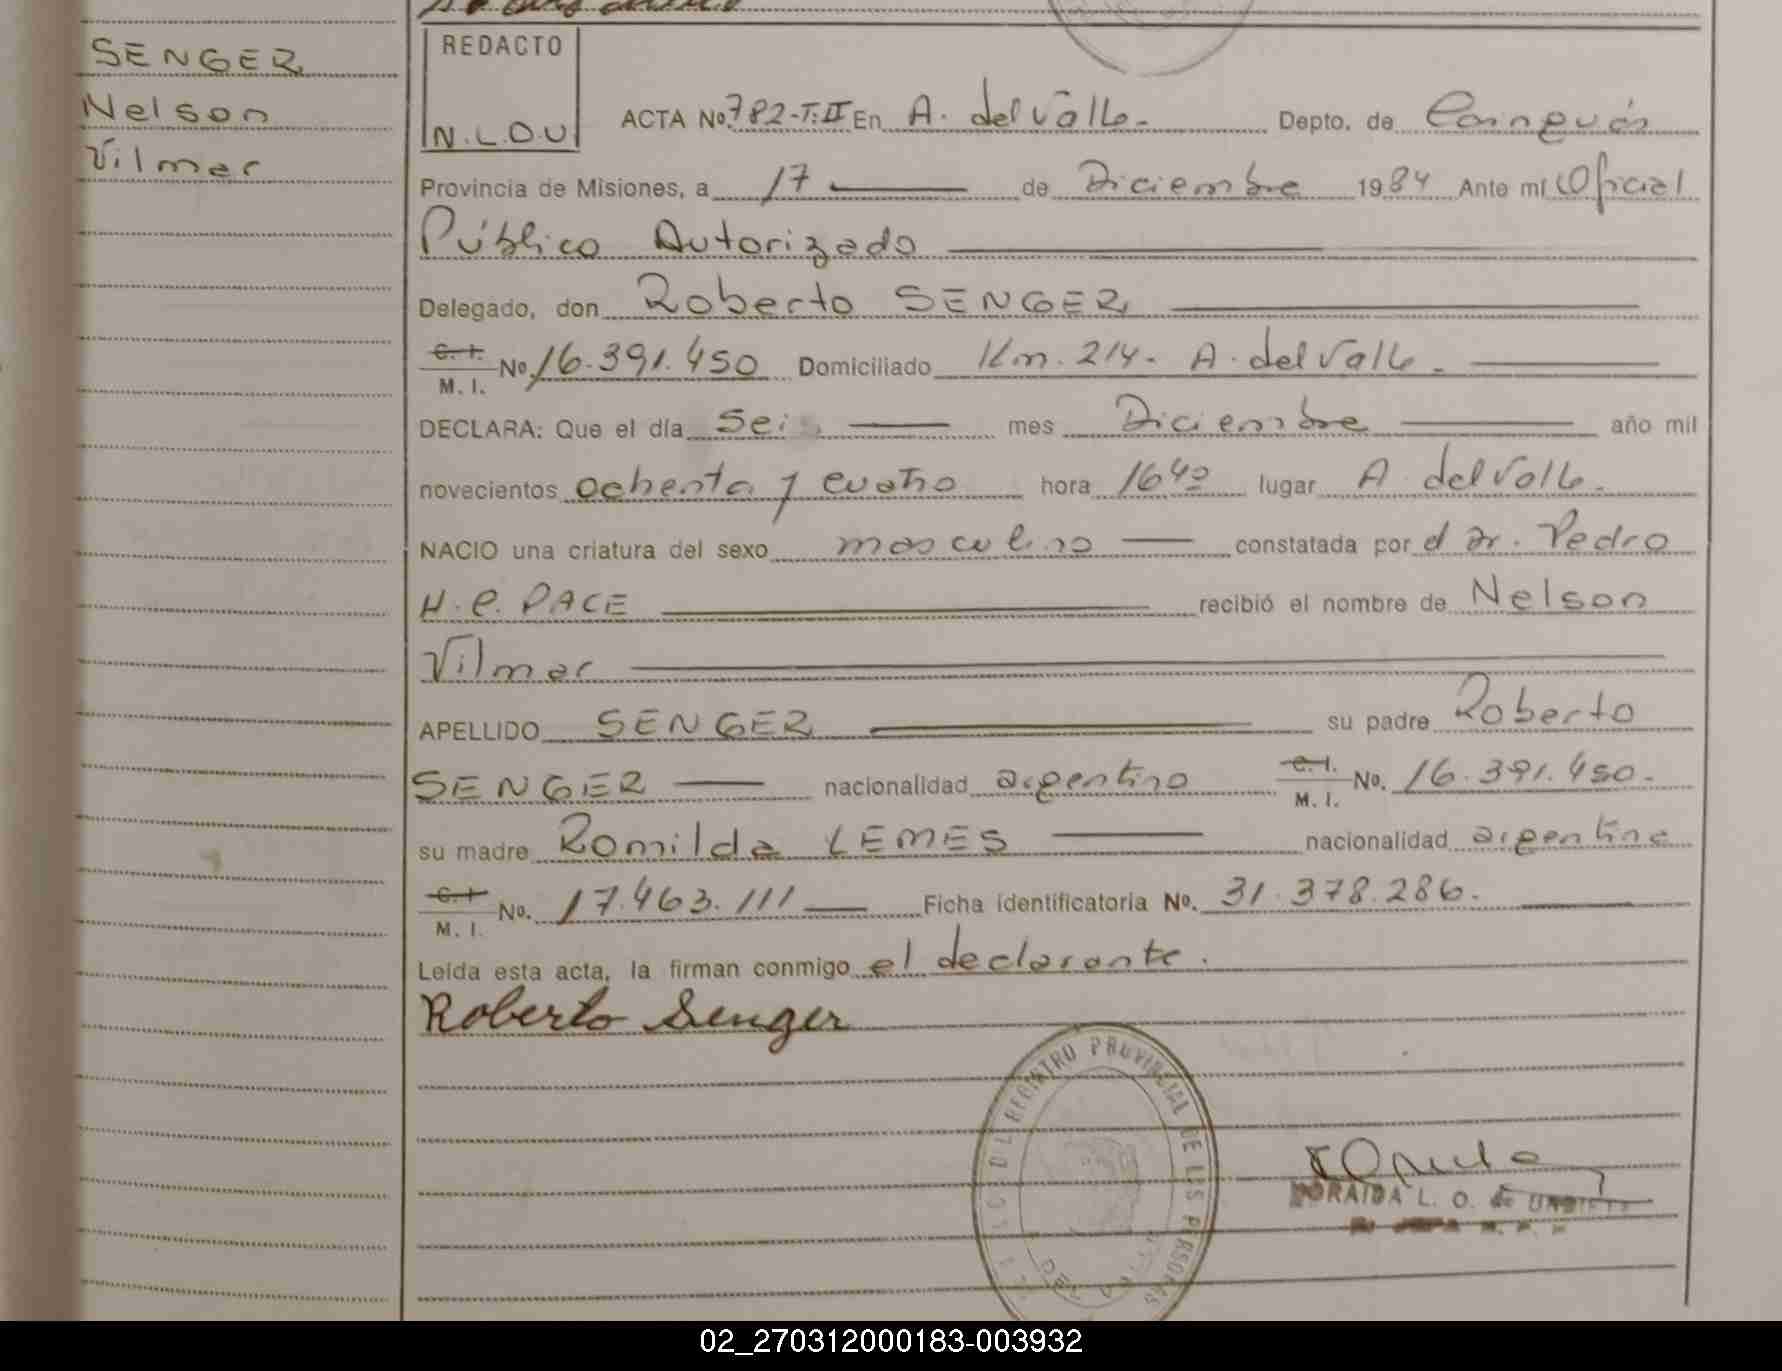 SENGER
Nelson
Vilmar
REDACTO
N.L.O.U
ACTA No. 782-T:II En A. del Valle. Depto. de Cainguás
Provincia de Misiones, a 17 de Diciembre 1984 Ante mí Oficial
Público Autorizado
Delegado, don Roberto SENGER
C. I.
M. I. No. 16.391.450 Domiciliado Km. 214. A. del Valle.
DECLARA: Que el día Seis mes Diciembre año mil
novecientos ochenta y cuatro hora 16 40 lugar A. del Valle.
NACIO una criatura del sexo masculino constatada por el Dr. Pedro
H. C. PACE recibió el nombre de Nelson
Vilmar
APELLIDO SENGER su padre Roberto
SENGER nacionalidad argentino C. I. M. I. No. 16.391.450.
su madre Romilda LEMES nacionalidad argentina
C. I.
M. I. No. 17.463.111 Ficha identificatoria No. 31.378.286.
Leída esta acta, la firman conmigo el declarante.
Roberto Senger
REGISTRO PROVINCIAL DE LAS PERSONAS
L. O. de
02_270312000183-003932